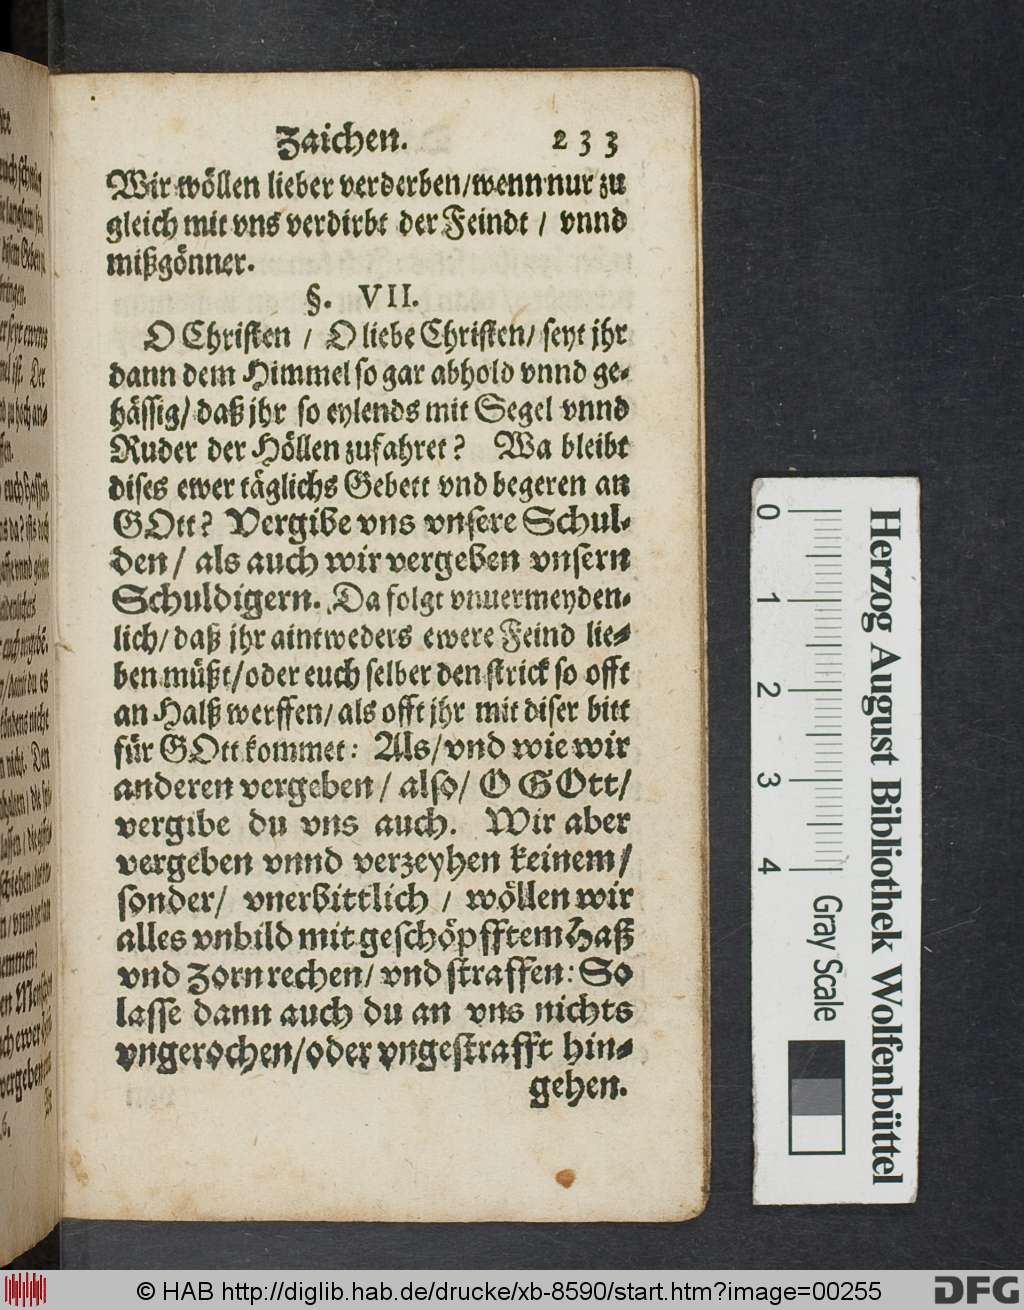 Zaichen. 233
Wir wöllen lieber verderben/wenn nur zu
gleich mit vns verdirbt der Feindt / vnnd
mißgönner.
§. VII.
O Christen / O liebe Christen/ seyt jhr
dann dem Himmel so gar abhold vnnd ge-
hässig/ daß jhr so eylends mit Segel vnnd
Ruder der Höllen zufahret? Wa bleibt
dises ewer täglichs Gebett vnd begeren an
GOtt? Vergibe vns vnsere Schul-
den / als auch wir vergeben vnsern
Schuldigern. Da folgt vnuermeyden-
lich/ daß jhr aintweders ewere Feind lie-
ben müßt/oder euch selber den strick so offt
an Halß werffen/ als offt jhr mit diser bitt
für GOtt kommet: Als/ vnd wie wir
anderen vergeben / also/ O GOtt/
vergibe du vns auch. Wir aber
vergeben vnnd verzeyhen keinem/
sonder/ vnerbittlich / wöllen wir
alles vnbild mit geschöpfftem Haß
vnd Zorn rechen/ vnd straffen: So
lasse dann auch du an vns nichts
vngerochen/oder vngestrafft hin-
gehen.
0 1 2 3 4
Herzog August Bibliothek Wolfenbüttel
Gray Scale
© HAB http://diglib.hab.de/drucke/xb-8590/start.htm?image=00255
DFG